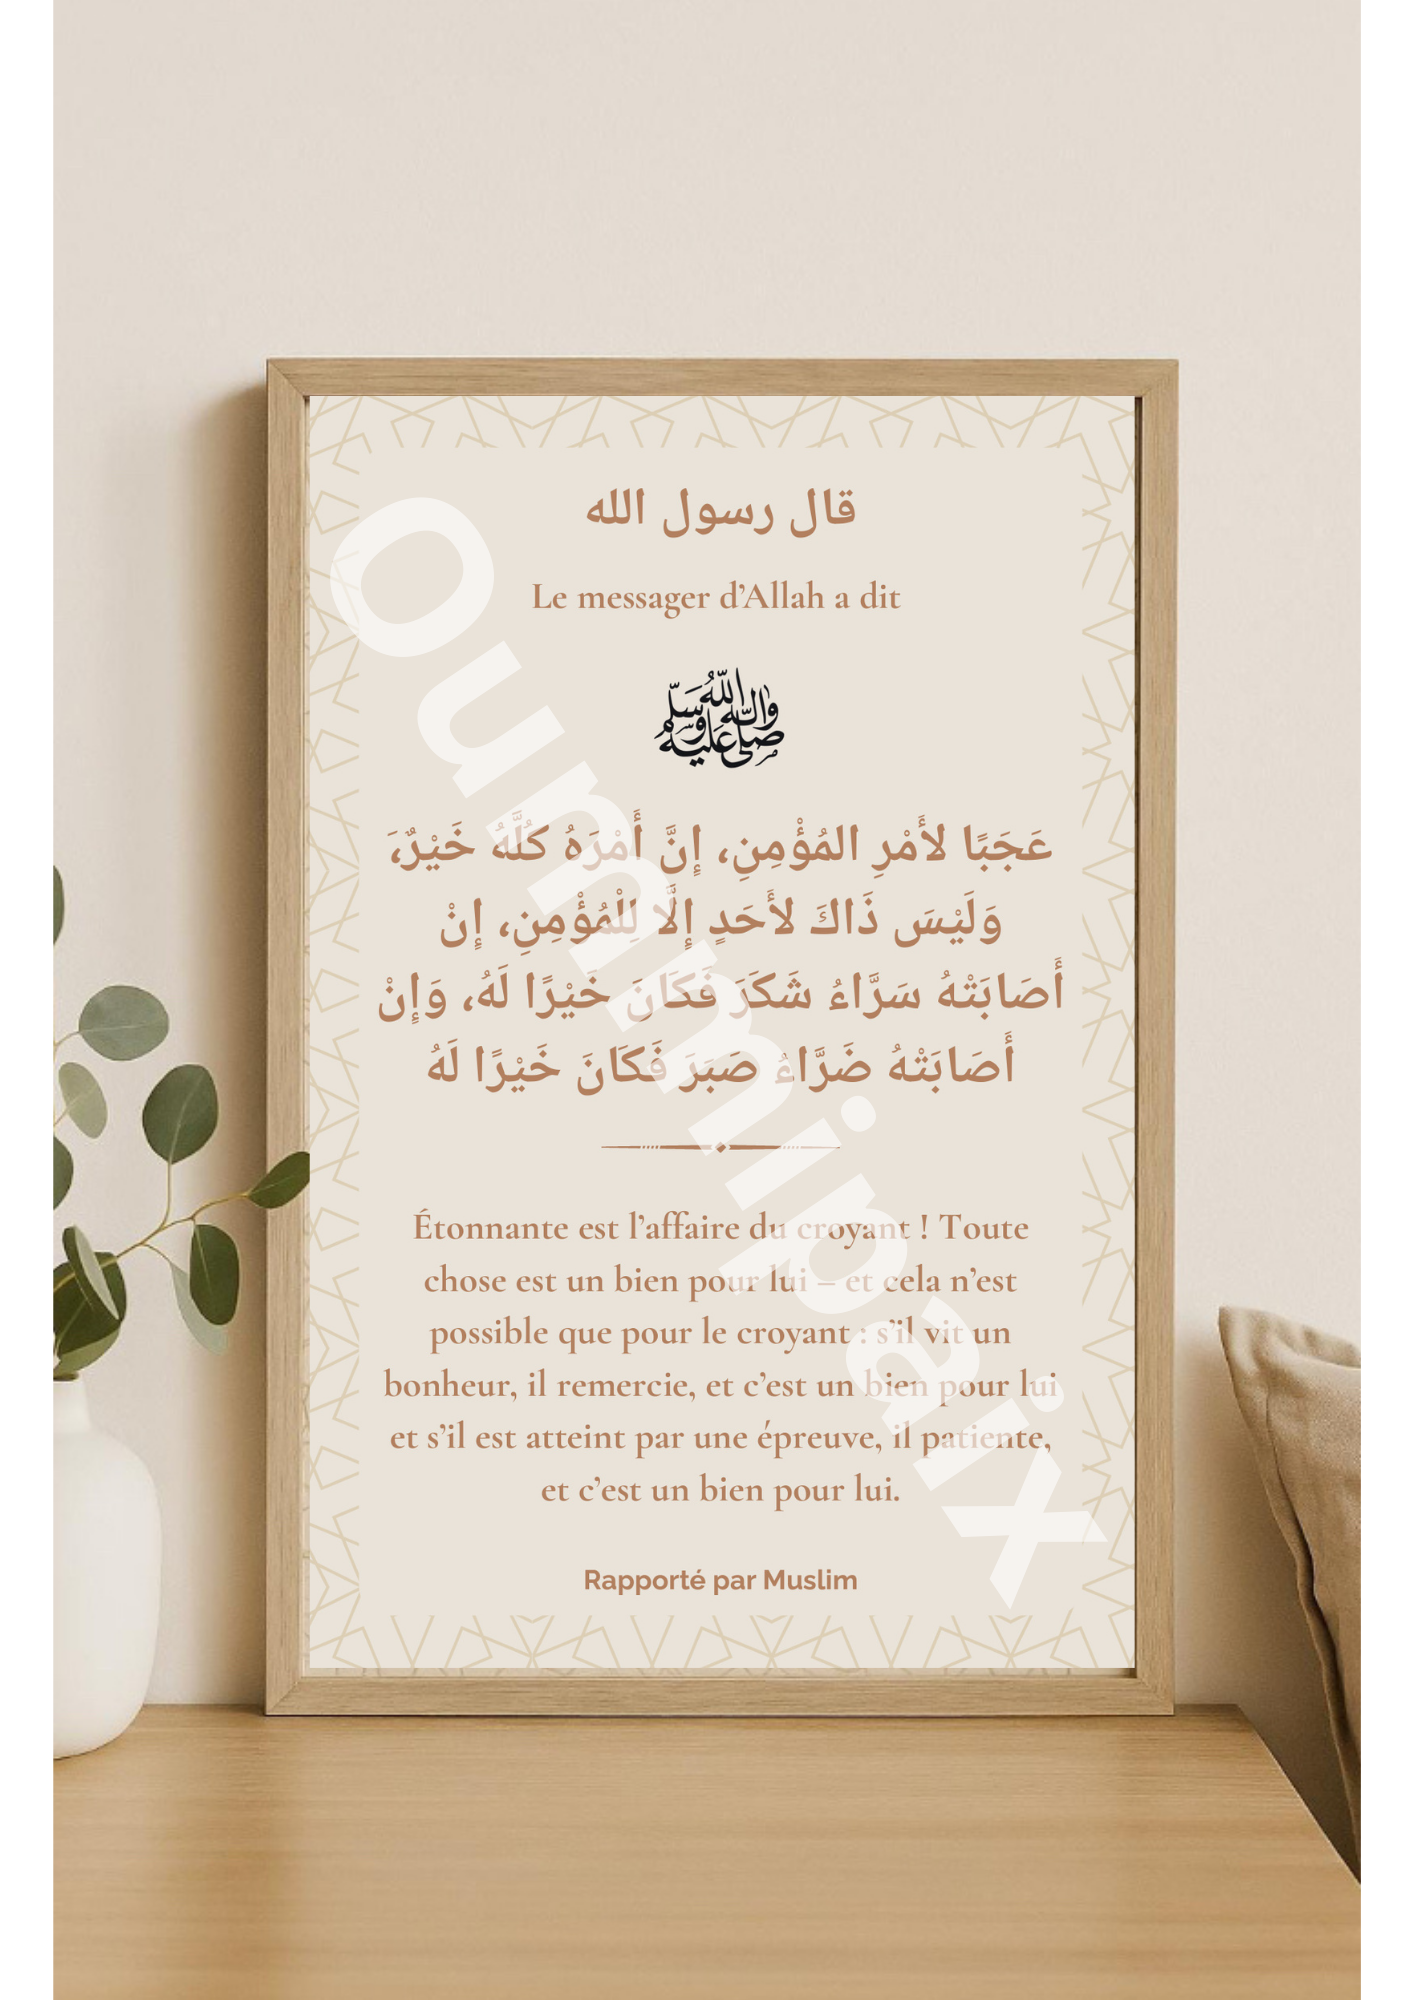 قال رسول الله
Le messager d’Allah a dit
صلى الله عليه وآله وسلم
عَجَبًا لأَمْرِ المُؤْمِنِ، إِنَّ أَمْرَهُ كُلَّهُ خَيْرٌ،َ
وَلَيْسَ ذَاكَ لأَحَدٍ إِلَّا لِلْمُؤْمِنِ، إِنْ
أَصَابَتْهُ سَرَّاءُ شَكَرَ فَكَانَ خَيْرًا لَهُ، وَإِنْ
أَصَابَتْهُ ضَرَّاءُ صَبَرَ فَكَانَ خَيْرًا لَهُ
Étonnante est l’affaire du croyant ! Toute
chose est un bien pour lui – et cela n’est
possible que pour le croyant : s’il vit un
bonheur, il remercie, et c’est un bien pour lui
et s’il est atteint par une épreuve, il patiente,
et c’est un bien pour lui.
Rapporté par Muslim
Ounmipaix